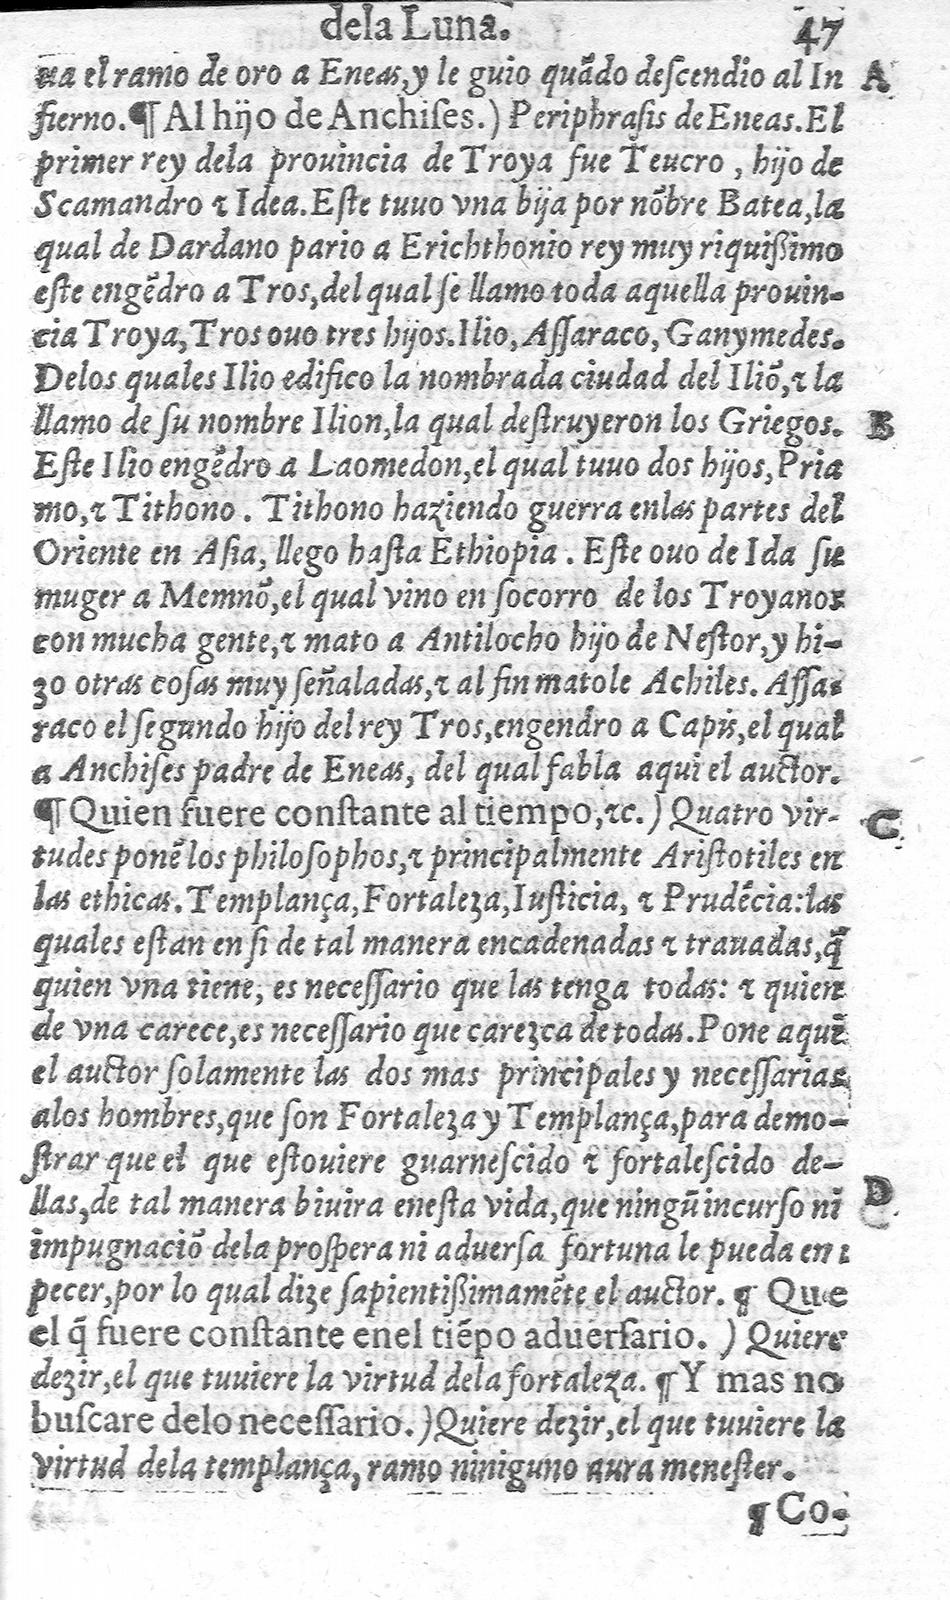 dela Luna. 47
ua el ramo de oro a Eneas, y le guio quãdo deſcendio al In A
fierno. ¶ Al hijo de Anchiſes.) Periphraſis de Eneas. El
primer rey dela prouincia de Troya fue Teucro, hijo de
Scamandro ⁊ Idea. Eſte tuuo vna hija por nõbre Batea, la
qual de Dardano pario a Erichthonio rey muy riquißimo
eſte engẽdro a Tros, del qual ſe llamo toda aquella prouin-
cia Troya, Tros ouo tres hijos. Ilio, Aſſaraco, Ganymedes.
Delos quales Ilio edifico la nombrada ciudad del Iliõ, ⁊ la
llamo de ſu nombre Ilion, la qual deſtruyeron los Griegos. B
Eſte Ilio engẽdro a Laomedon, el qual tuuo dos hijos, Pria
mo, ⁊ Tithono. Tithono haziendo guerra enlas partes del
Oriente en Aſia, llego haſta Ethiopia. Eſte ouo de Ida ſu
muger a Memnõ, el qual vino en ſocorro de los Troyanos
con mucha gente, ⁊ mato a Antilocho hijo de Neſtor, y hi-
zo otras coſas muy ſeñaladas, ⁊ al fin matole Achiles. Aſſa-
raco el ſegundo hijo del rey Tros, engendro a Capis, el qual
a Anchiſes padre de Eneas, del qual fabla aqui el auctor.
¶ Quien fuere conſtante al tiempo, ⁊c.) Quatro vir- C
tudes ponẽ los philoſophos, ⁊ principalmente Ariſtotiles en
las ethicas. Templança, Fortaleza, Iuſticia, ⁊ Prudẽcia: las
quales eſtan en ſi de tal manera encadenadas ⁊ trauadas, q̃
quien vna tiene, es neceſſario que las tenga todas: ⁊ quien
de vna carece, es neceſſario que carezca de todas. Pone aqui
el auctor ſolamente las dos mas principales y neceſſarias
alos hombres, que ſon Fortaleza y Templança, para demo-
ſtrar que el que eſtouiere guarneſcido ⁊ fortaleſcido de-
llas, de tal manera biuira eneſta vida, que ningũ incurſo ni D
impugnaciõ dela proſpera ni aduerſa fortuna le pueda em
pecer, por lo qual dize ſapientißimamẽte el auctor. ¶ Que
el q̃ fuere conſtante enel tiẽpo aduerſario.) Quiere
dezir, el que tuuiere la virtud dela fortaleza. ¶ Y mas no
buſcare delo neceſſario.) Quiere dezir, el que tuuiere la
virtud dela templança, ramo niniguno aura meneſter.
¶ Co-